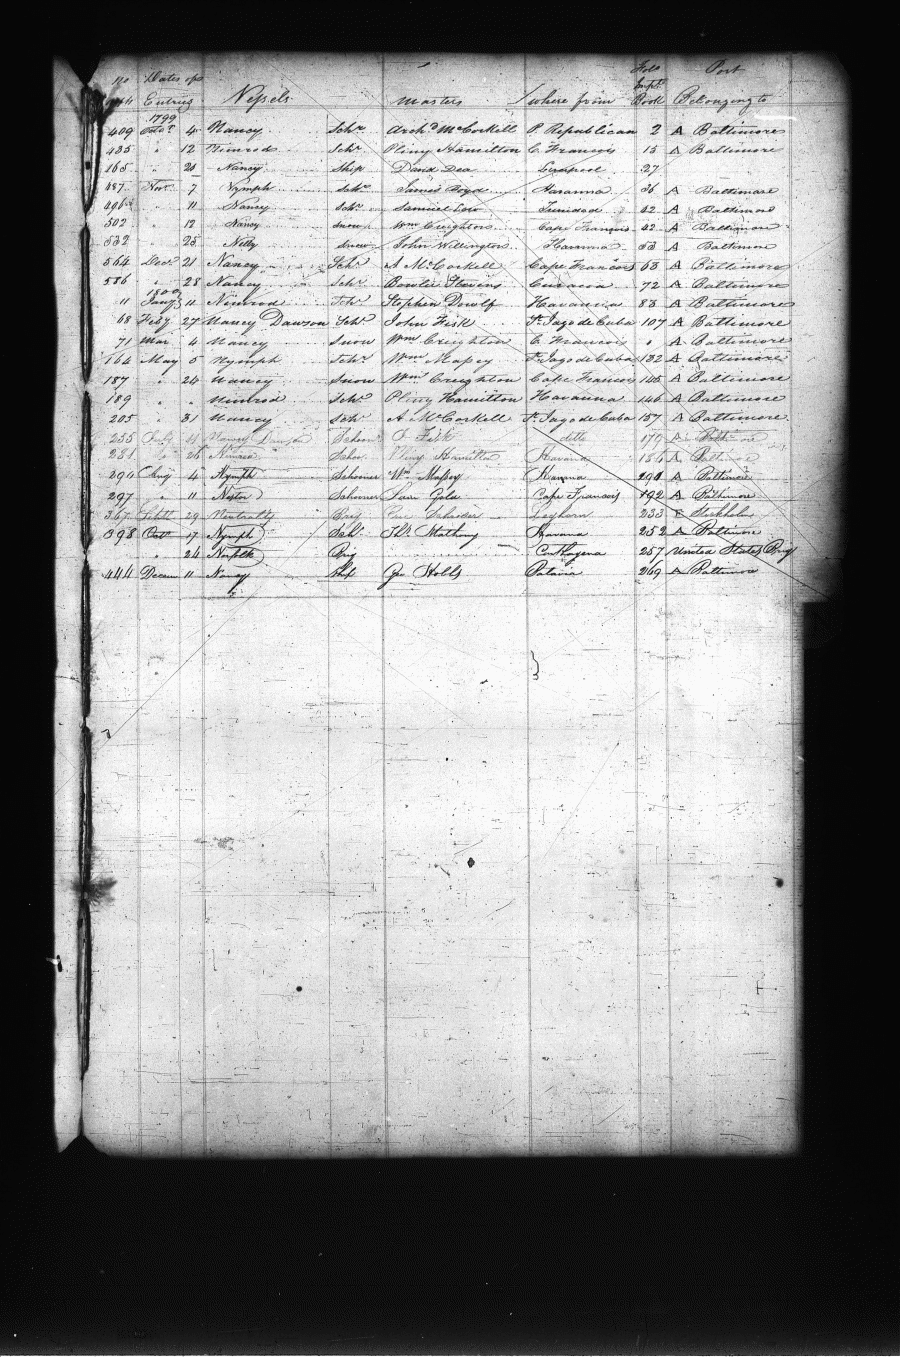 No Dates of Fol. Port
Entries Vessels Masters where from Impt. Book Belonging to
1799
409 Octr. 4 Nancy Schr. Archd. McCorkell P. Republican 2 A Baltimore
435 " 12 Nimrod Schr. Pliny Hamilton C. Francois 15 A Baltimore
465 " 20 Nancy Ship David Dea Liverpool 27
487 Novr. 7 Nymph Schr. James Boyd Havanna 36 A Baltimore
496 " 11 Nancy Schr. Samuel Low Trinidad 42 A Baltimore
502 " 12 Nancy Snow Wm Creighton Cape Francois 42 A Baltimore
532 " 25 Nelly Snow John Willington Havanna 53 A Baltimore
564 Decr. 21 Nancy Schr. A McCorkell Cape Francois 68 A Baltimore
586 " 28 Nancy Schr. Bowler Stevens Curacia 72 A Baltimore
1800
11 Jany 11 Nimrod Schr. Stephen Dewolf Havanna 83 A Baltimore
68 Feby 27 Nancy Dawson Schr. John Fisk St. Jago de Cuba 107 A Baltimore
71 Mar 4 Nancy Snow Wm Creighton C. Francois " A Baltimore
164 May 5 Nymph Schr. Wm Massey St. Jago de Cuba 132 A Baltimore
187 " 24 Nancy Snow Wm Creighton Cape Francois 145 A Baltimore
189 " " Nimrod Schr. Pliny Hamilton Havanna 146 A Baltimore
205 " 31 Nancy Schr. A McCorkell St. Jago de Cuba 157 A Baltimore
255 July 11 Nancy Dawson Schoon Fisk ditto 179 A Baltimore
281 26 Nimrod Schor. Pliny Hamilton Havana 186 A Baltimore
290 Aug 4 Nymph Schooner Wm Massey Havana 191 A Baltimore
297 " 11 Nestor Schooner Sam Gold Cape Francois 192 A Baltimore
367 Septr. 29 Neutrality Brig Schroder Leghorn 233 F Stockholm
398 Octr. 17 Nymph Schr. Mathony Havana 252 A Baltimore
" 24 Norfolk Brig Carthagena 257 United States Brig
444 Decem 11 Nancy Ship Geo Stolls Batavia 269 A Baltimore